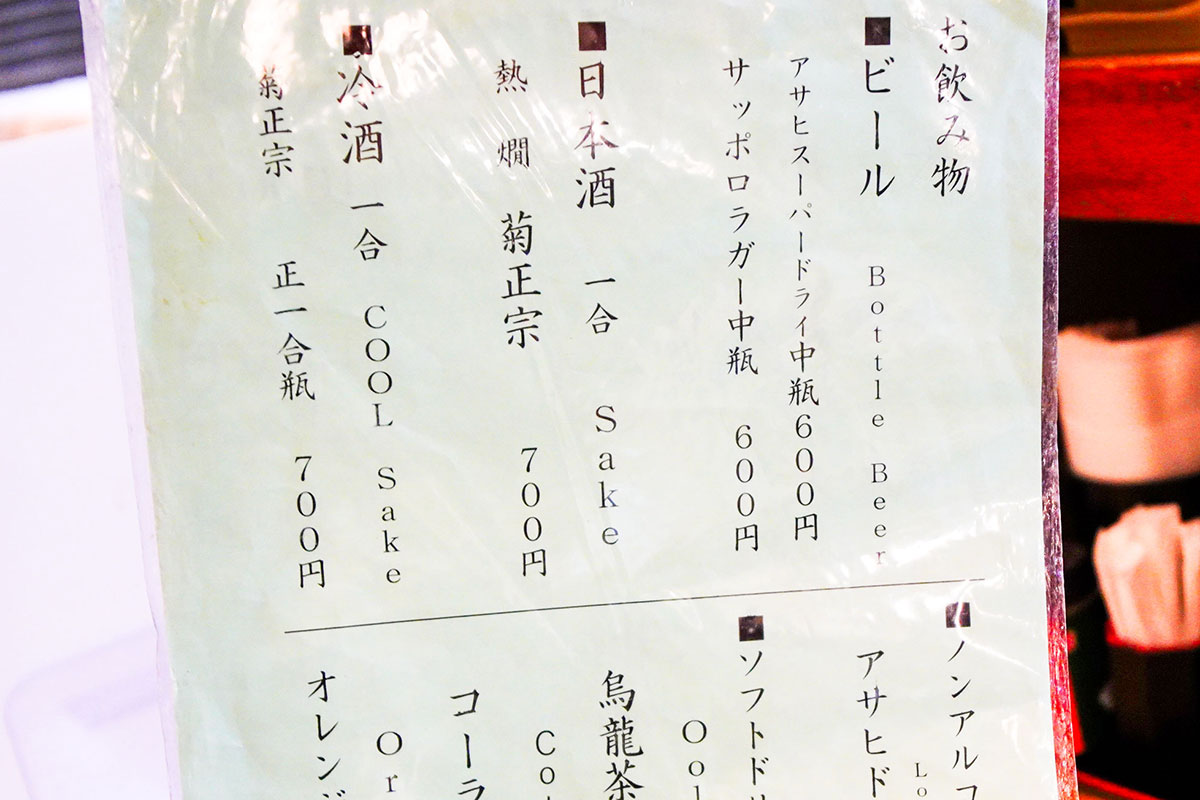 お飲み物
■ビール Bottle Beer
アサヒスーパードライ中瓶600円
サッポロラガー中瓶 600円
■日本酒 一合 Sake
熱燗 菊正宗 700円
■冷酒 一合 COOL Sake
菊正宗 正一合瓶 700円
■ノンアルコ
アサヒド
■ソフトド
烏龍茶
コーラ
オレン